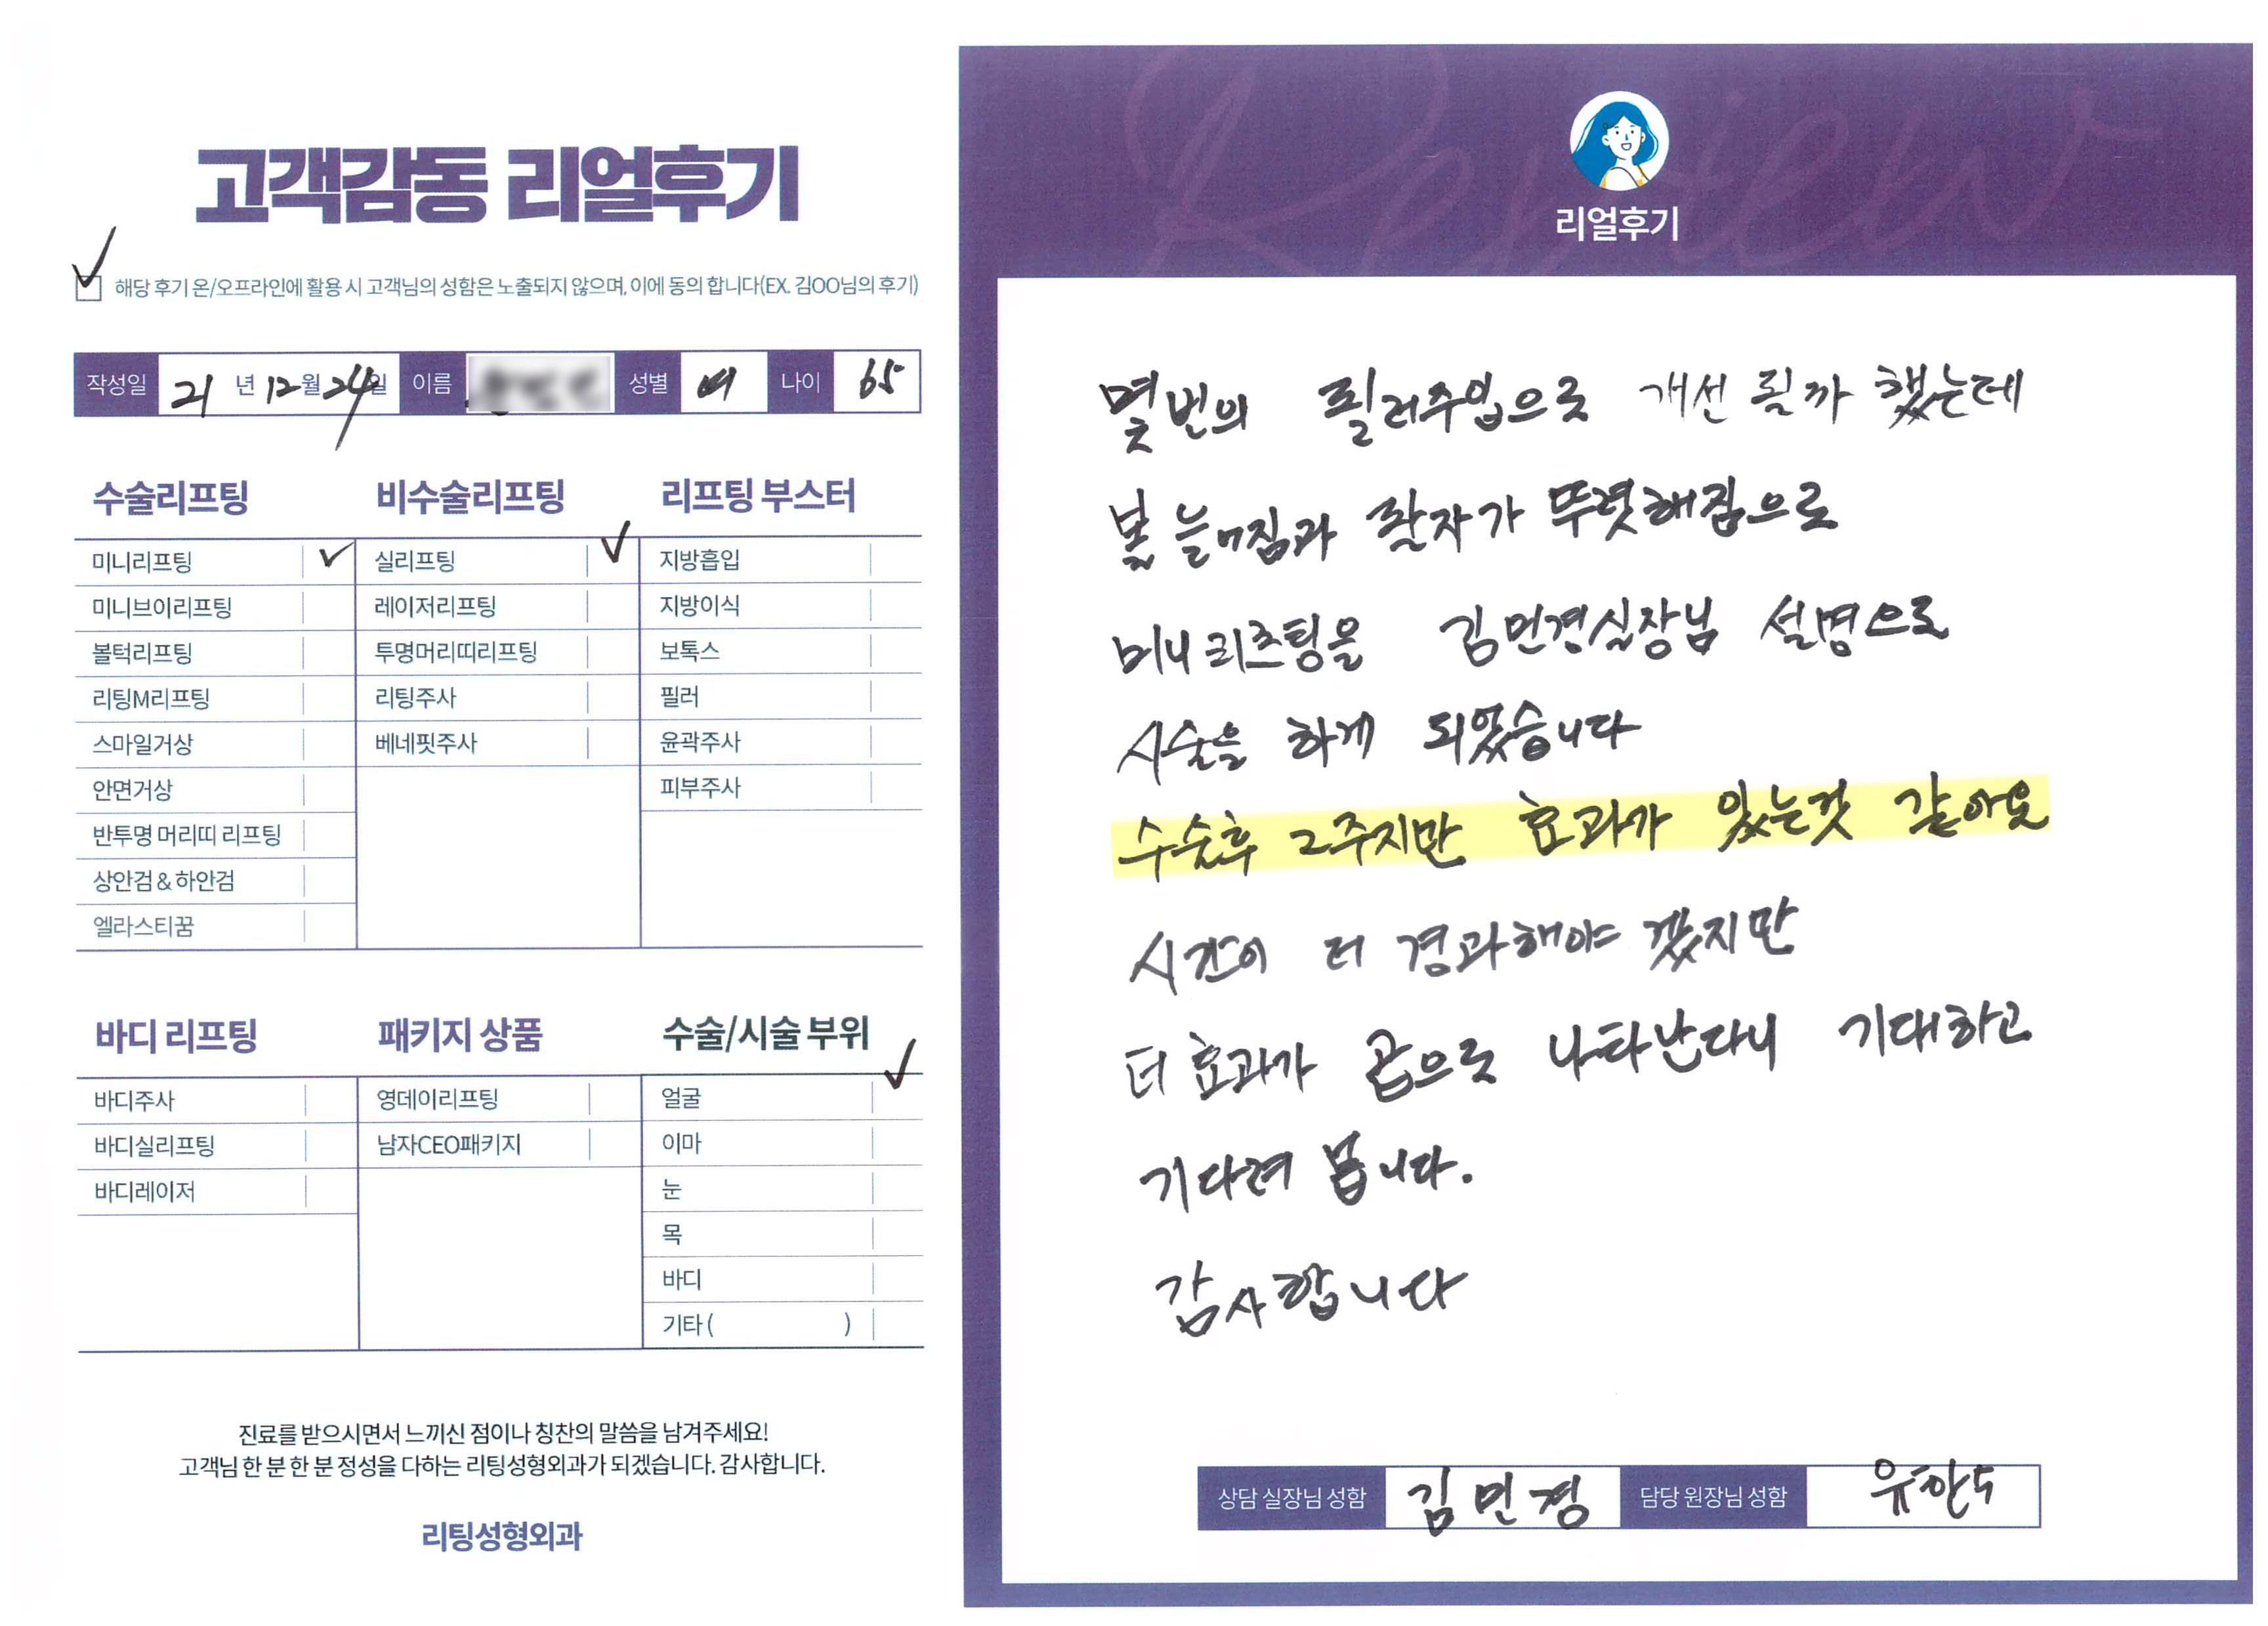 고객감동 리얼후기
해당 후기 온/오프라인에 활용 시 고객님의 성함은 노출되지 않으며, 이에 동의 합니다(EX. 김OO님의 후기)
작성일 21 년 12 월 24 일 이름 성별 여 나이 65
수술리프팅
미니리프팅
미니브이리프팅
볼턱리프팅
리팅M리프팅
스마일거상
안면거상
반투명 머리띠 리프팅
상안검 & 하안검
엘라스티꿈
비수술리프팅
실리프팅
레이저리프팅
투명머리띠리프팅
리팅주사
베네핏주사
리프팅 부스터
지방흡입
지방이식
보톡스
필러
윤곽주사
피부주사
바디 리프팅
바디주사
바디실리프팅
바디레이저
패키지 상품
영데이리프팅
남자CEO패키지
수술/시술 부위
얼굴
이마
눈
목
바디
기타 ( )
진료를 받으시면서 느끼신 점이나 칭찬의 말씀을 남겨주세요!
고객님 한 분 한 분 정성을 다하는 리팅성형외과가 되겠습니다. 감사합니다.
리팅성형외과
Review
리얼후기
몇번의 필러주입으로 개선 될까 했는데
볼 늘어짐과 팔자가 뚜렷해짐으로
미니 리프팅을 김민경실장님 설명으로
시술을 하게 되었습니다
수술후 2주지만 효과가 있는것 같아요
시간이 더 경과해야 겠지만
더 효과가 곱으로 나타난다니 기대하고
기다려 봅니다.
감사합니다
상담 실장님 성함 김민경 담당 원장님 성함 유한수